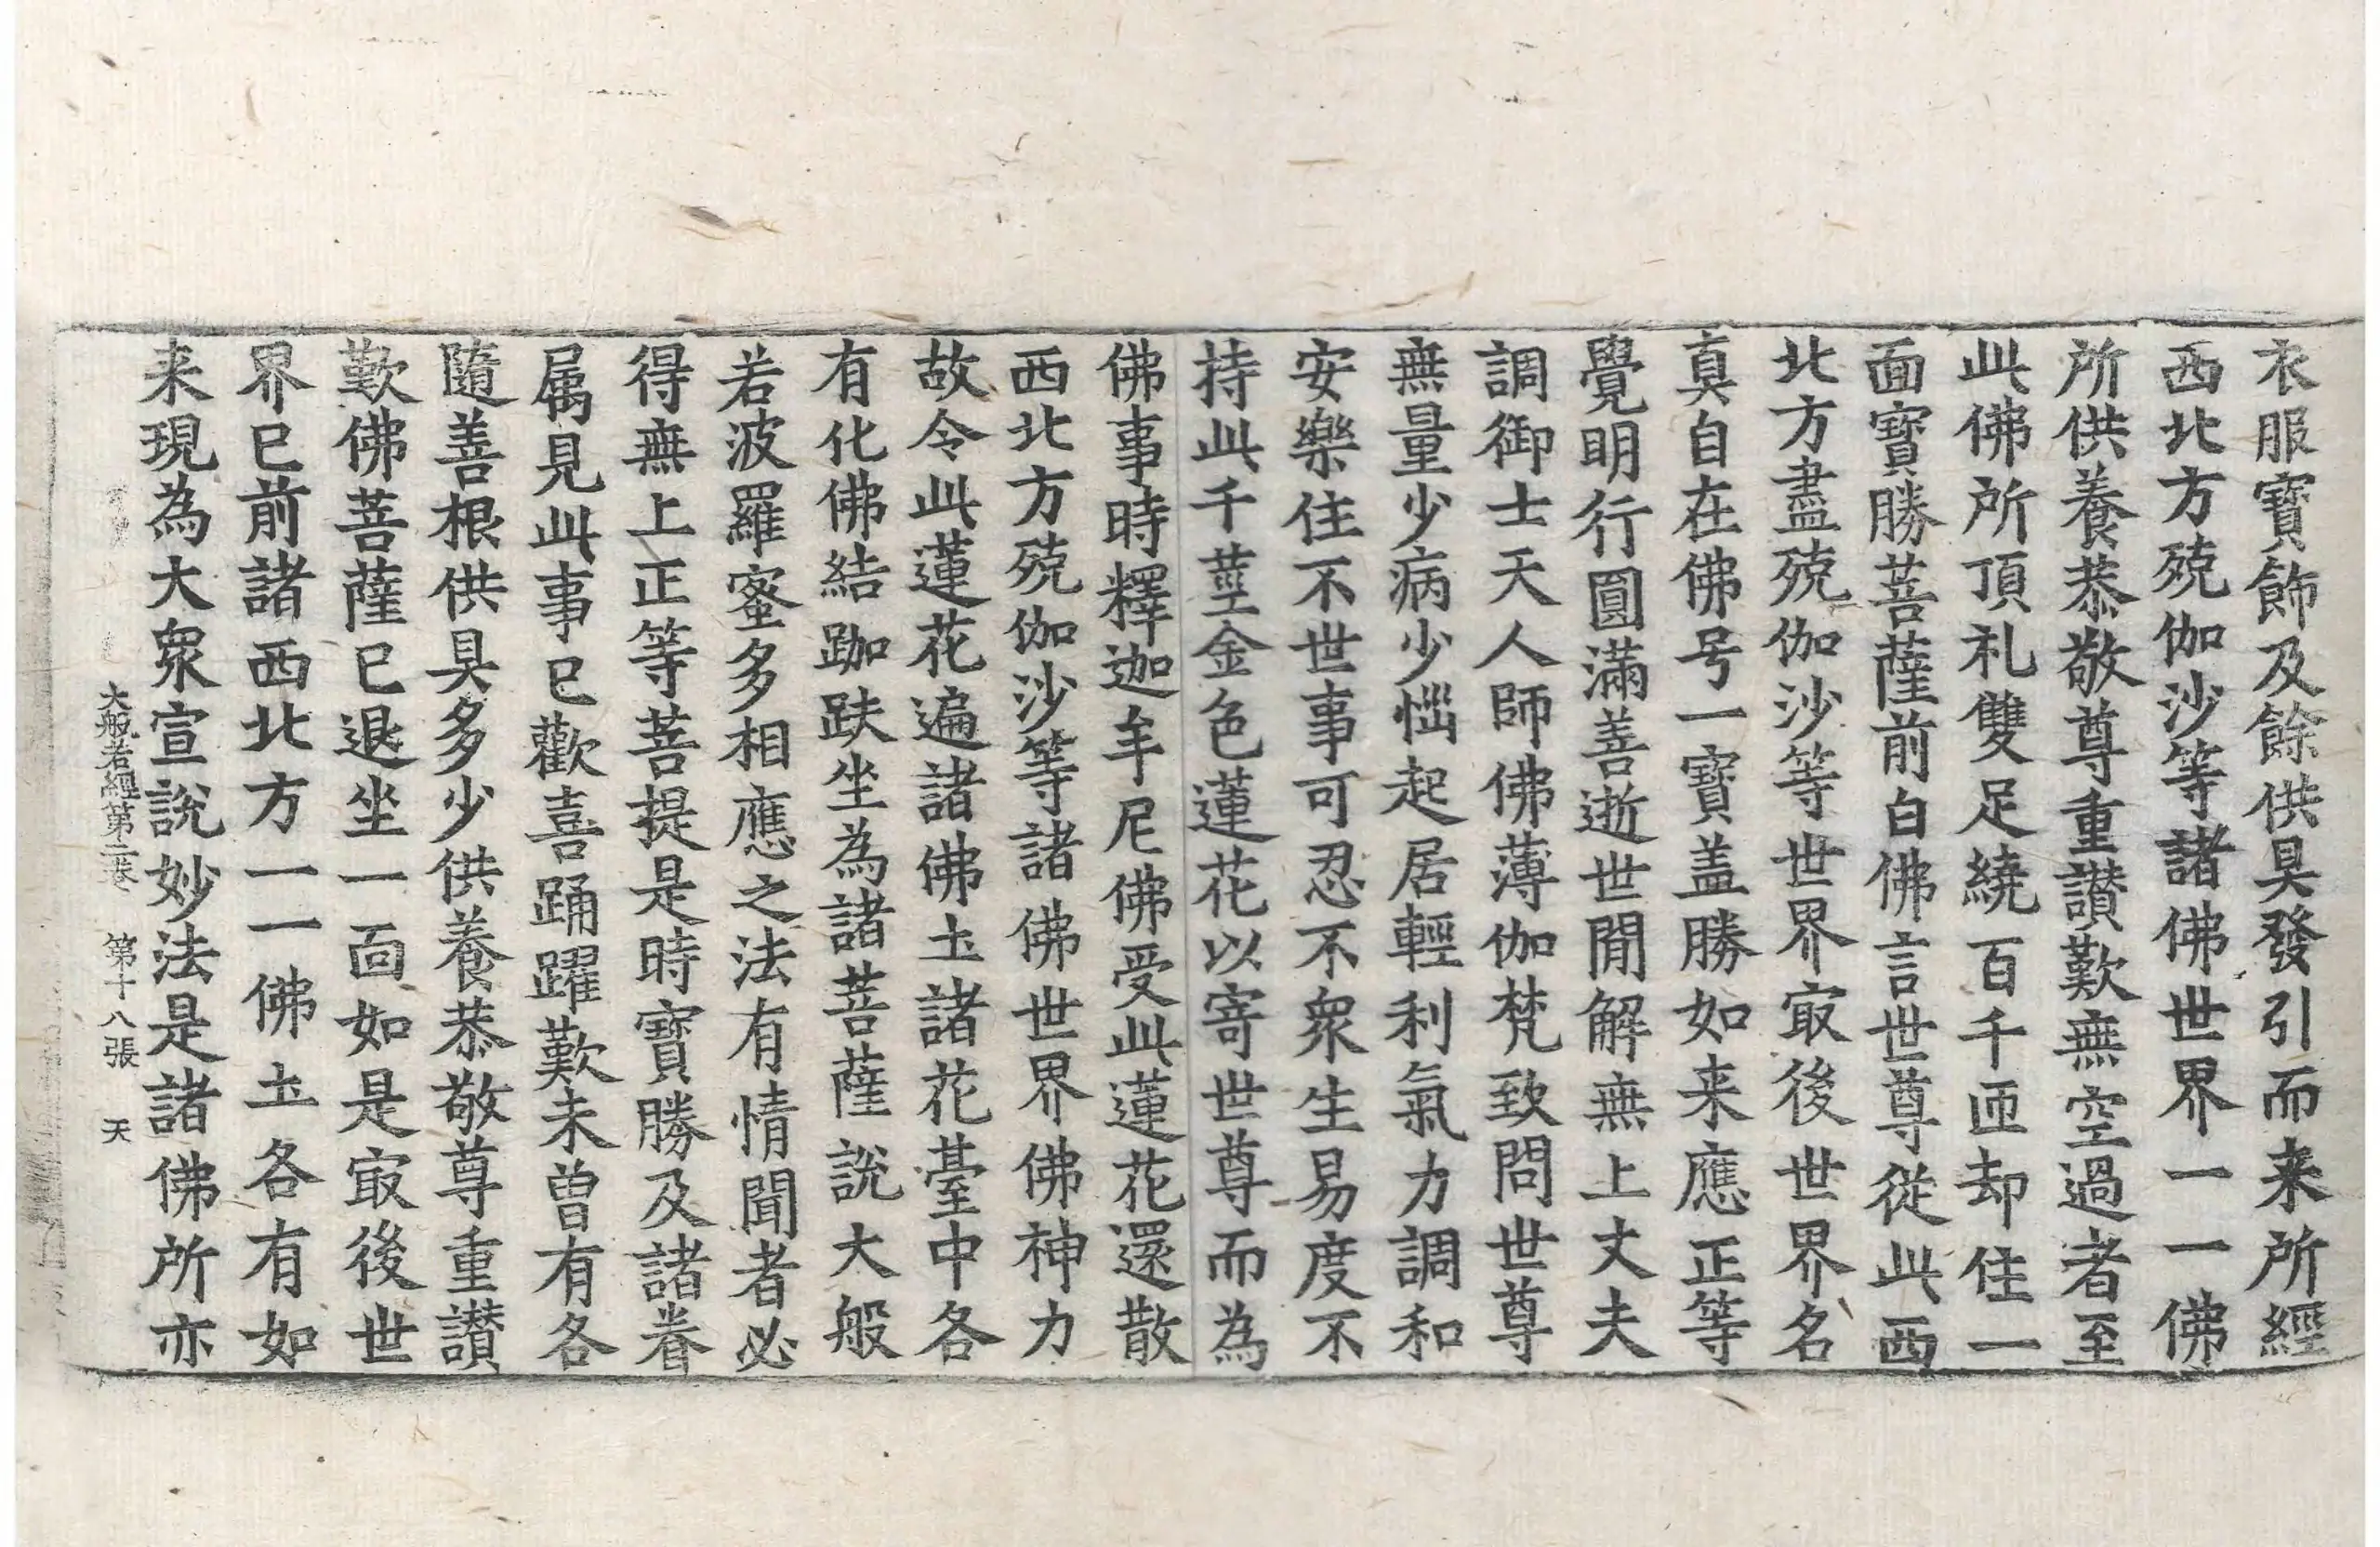 衣服寶飾及餘供具發引而来所經
西北方殑伽沙等諸佛世界一一佛
所供養恭敬尊重讃歎無空過者至
此佛所頂礼雙足繞百千匝却住一
面寶勝菩薩前白佛言世尊從此西
北方盡殑伽沙等世界㝡後世界名
真自在佛号一寶盖勝如来應正等
覺明行圓滿善逝世間解無上丈夫
調御士天人師佛薄伽梵致問世尊
無量少病少惱起居輕利氣力調和
安樂住不世事可忍不衆生易度不
持此千莖金色蓮花以寄世尊而為
佛事時釋迦牟尼佛受此蓮花還散
西北方殑伽沙等諸佛世界佛神力
故令此蓮花遍諸佛土諸花臺中各
有化佛結跏趺坐為諸菩薩說大般
若波羅蜜多相應之法有情聞者必
得無上正等菩提是時寶勝及諸眷
属見此事已歡喜踊躍歎未曾有各
隨善根供具多少供養恭敬尊重讃
歎佛菩薩已退坐一面如是㝡後世
界已前諸西北方一一佛土各有如
来現為大衆宣說妙法是諸佛所亦
大般若經第二卷　第十八張　天